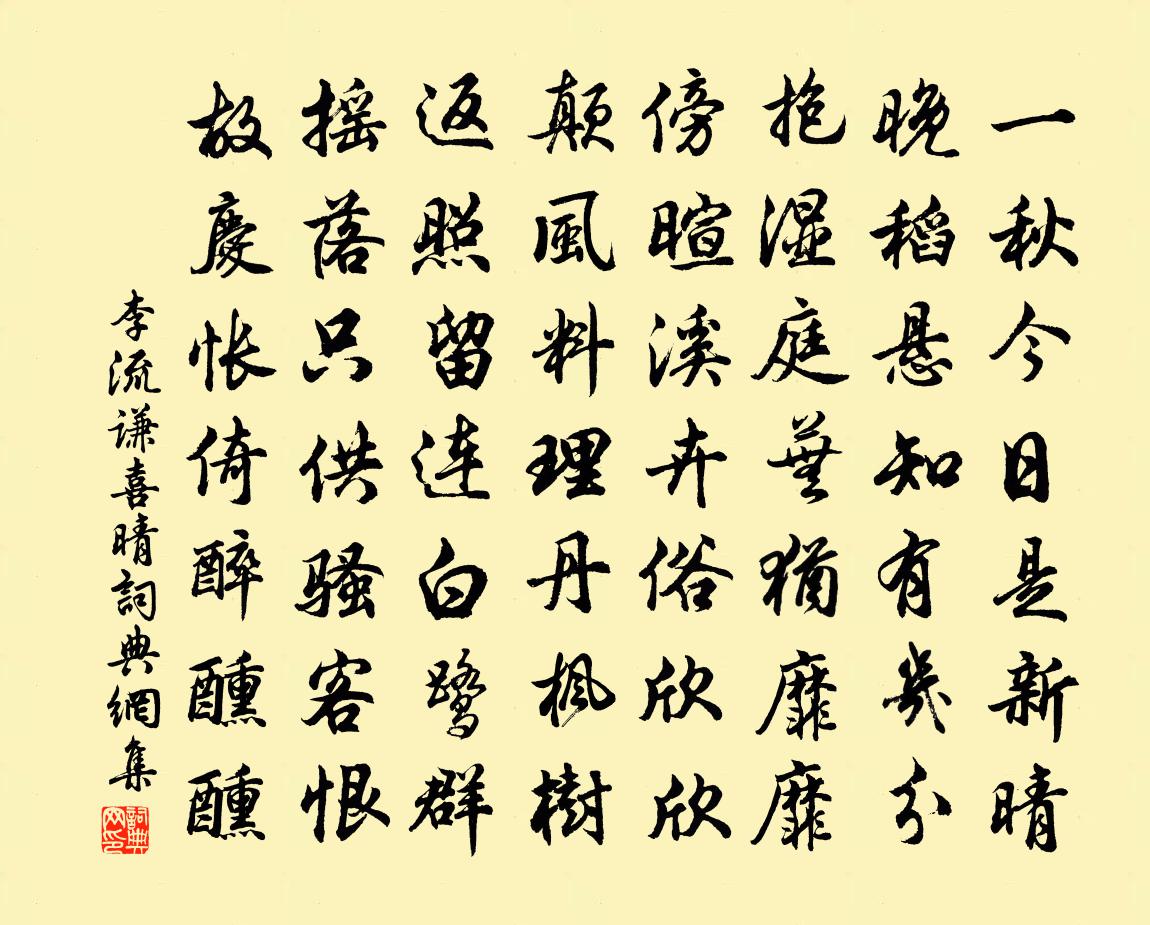 一秋今日是新晴
晚稻悬知有幾分
抱湿庭蕪猶靡靡
傍暄溪卉俗欣欣
颠風料理丹楓樹
返照留连白鹭群
摇落只供骚客恨
故慶怅倚醉醺醺
李流谦喜晴詞典網集
詞典网印